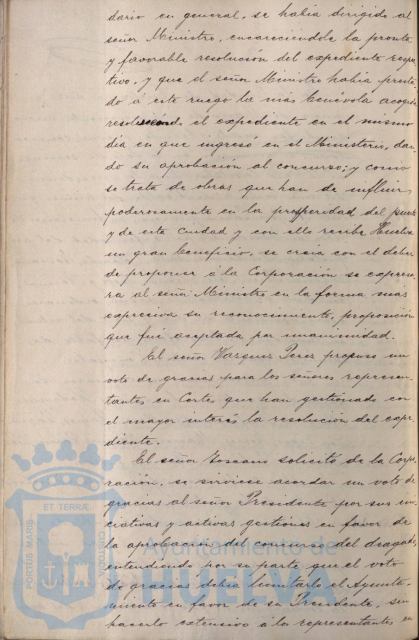 dario en general, se habia dirigido al
señor Ministro, encareciendole la pronta
y favorable resolución del expediente respec
tivo, y que el señor Ministro habia presta
do á este ruego la más benévola acogida
el expediente en el mismo
dia en que ingresó en el Ministerio, dan
do su aprobación al concurso; y como
se trata de obras que han de influir
poderosamente en la prosperidad del puerto
y de esta Ciudad y con ello recibe Huelva
un gran beneficio, se creia con el deber
de proponer á la Corporación se expresa
ra al señor Ministro en la forma más
expresiva su reconocimiento, proposición
que fué aceptada por unanimidad.
El señor Vazquez Perez propuso un
voto de gracias para los señores represen
tantes en Cortes que han gestionado con
el mayor interés la resolución del expe
diente.
El señor Toscano solicitó de la Corpo
ración, se sirviese acordar un voto de
gracias al señor Presidente por sus ini
ciativas y activas gestiones en favor de
la aprobación del concurso del dragado,
entendiendo por su parte que el voto
de gracias debia limitarlo el Ayunta
miento en favor de su Presidente, sin
hacerlo extensivo á los representantes en
PORTUS MARIS
ET TERRÆ
CUSTODIA
Ayuntamiento de
HUELVA